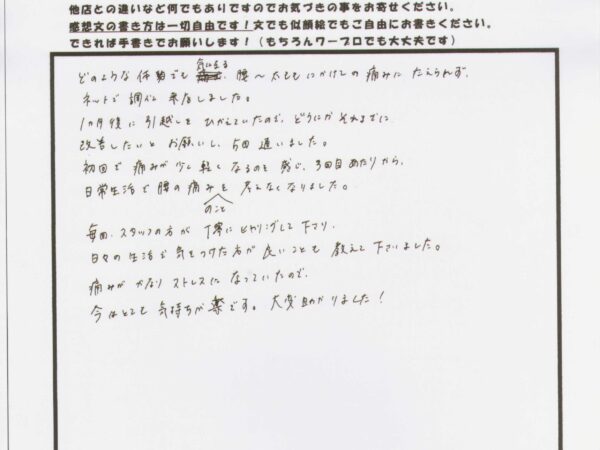 他店との違いなど何でもありですのでお気づきの事をお寄せください。
感想文の書き方は一切自由です!文でも似顔絵でもご自由にお書きください。
できれば手書きでお願いします!(もちろんワープロでも大丈夫です)
気になる
どのような体勢でも 腰〜太ももにかけての痛みにたえられず、
ネットで調べ来店しました。
1か月後に引越しをひかえていたので、どうにかそれまでに
改善したいとお願いし、5回通いました。
初回で痛みが少し軽くなるのを感じ、3回目あたりから、
日常生活で腰の痛みを考えなくなりました。
のこと
毎回、スタッフの方が丁寧にヒヤリングして下さり、
日々の生活で気をつけた方が良いことも教えて下さいました。
痛みがかなりストレスになっていたので、
今はとても気持ちが楽です。大変助かりました!